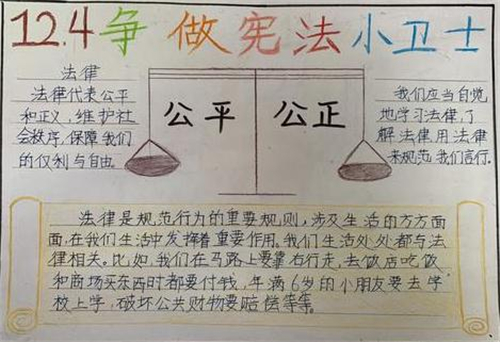 12.4争做宪法小卫士
法律
法律代表公平
和正义，维护社
会秩序，保障我们
的权利与自由
公平 公正
我们应当自觉
地学习法律，了
解法律用法律
来规范我们言行.
法律是规范行为的重要规则，涉及生活的方方面
面，在我们生活中发挥着重要作用。我们生活处处都与法
律相关。比如，我们在马路上要靠右行走，去饭店吃饭
和商场买东西时都要付钱，年满6岁的小朋友要去学
校上学，破坏公共财物要赔偿等等。